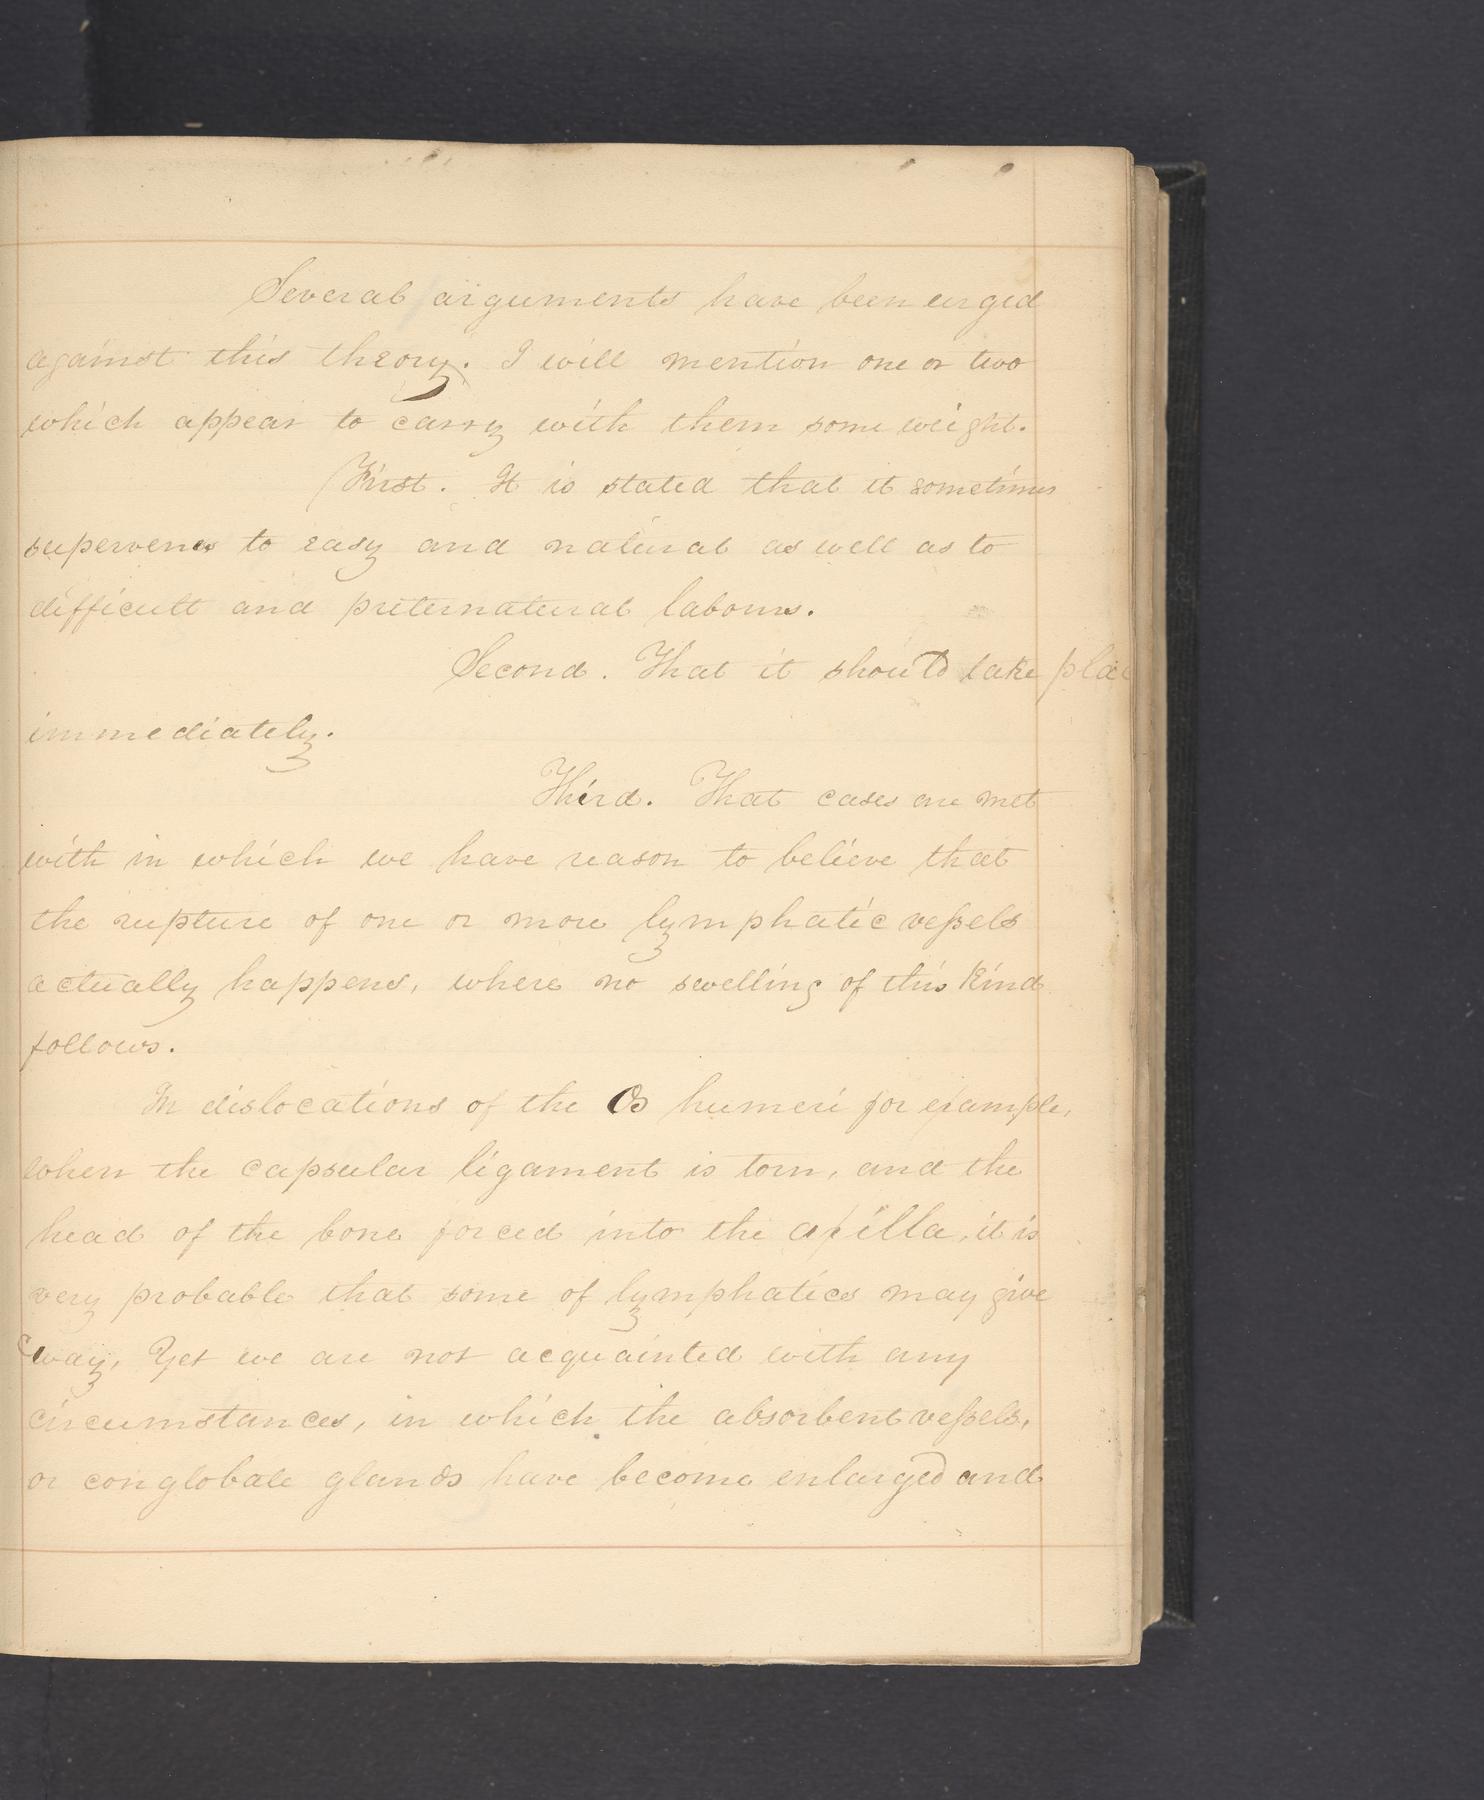 Several arguments have been urged
against this theory. I will mention one or two
which appear to carry with them some weight.
First. It is stated that it sometimes
supervenes to easy and natural as well as to
difficult and preternatural labours.
Second. That it should take plac
immediately.
Third. That cases are met
with in which we have reason to believe that
the rupture of one or more lymphatic vessels
actually happens, where no swelling of this kind
follows.
In dislocations of the Os humeri for example,
when the capsular ligament is torn, and the
head of the bone forced into the axilla, it is
very probable that some of lymphatics may give
way, Yet we are not acquainted with any
circumstances, in which the absorbent vessels,
or conglobate glands have become enlarged and